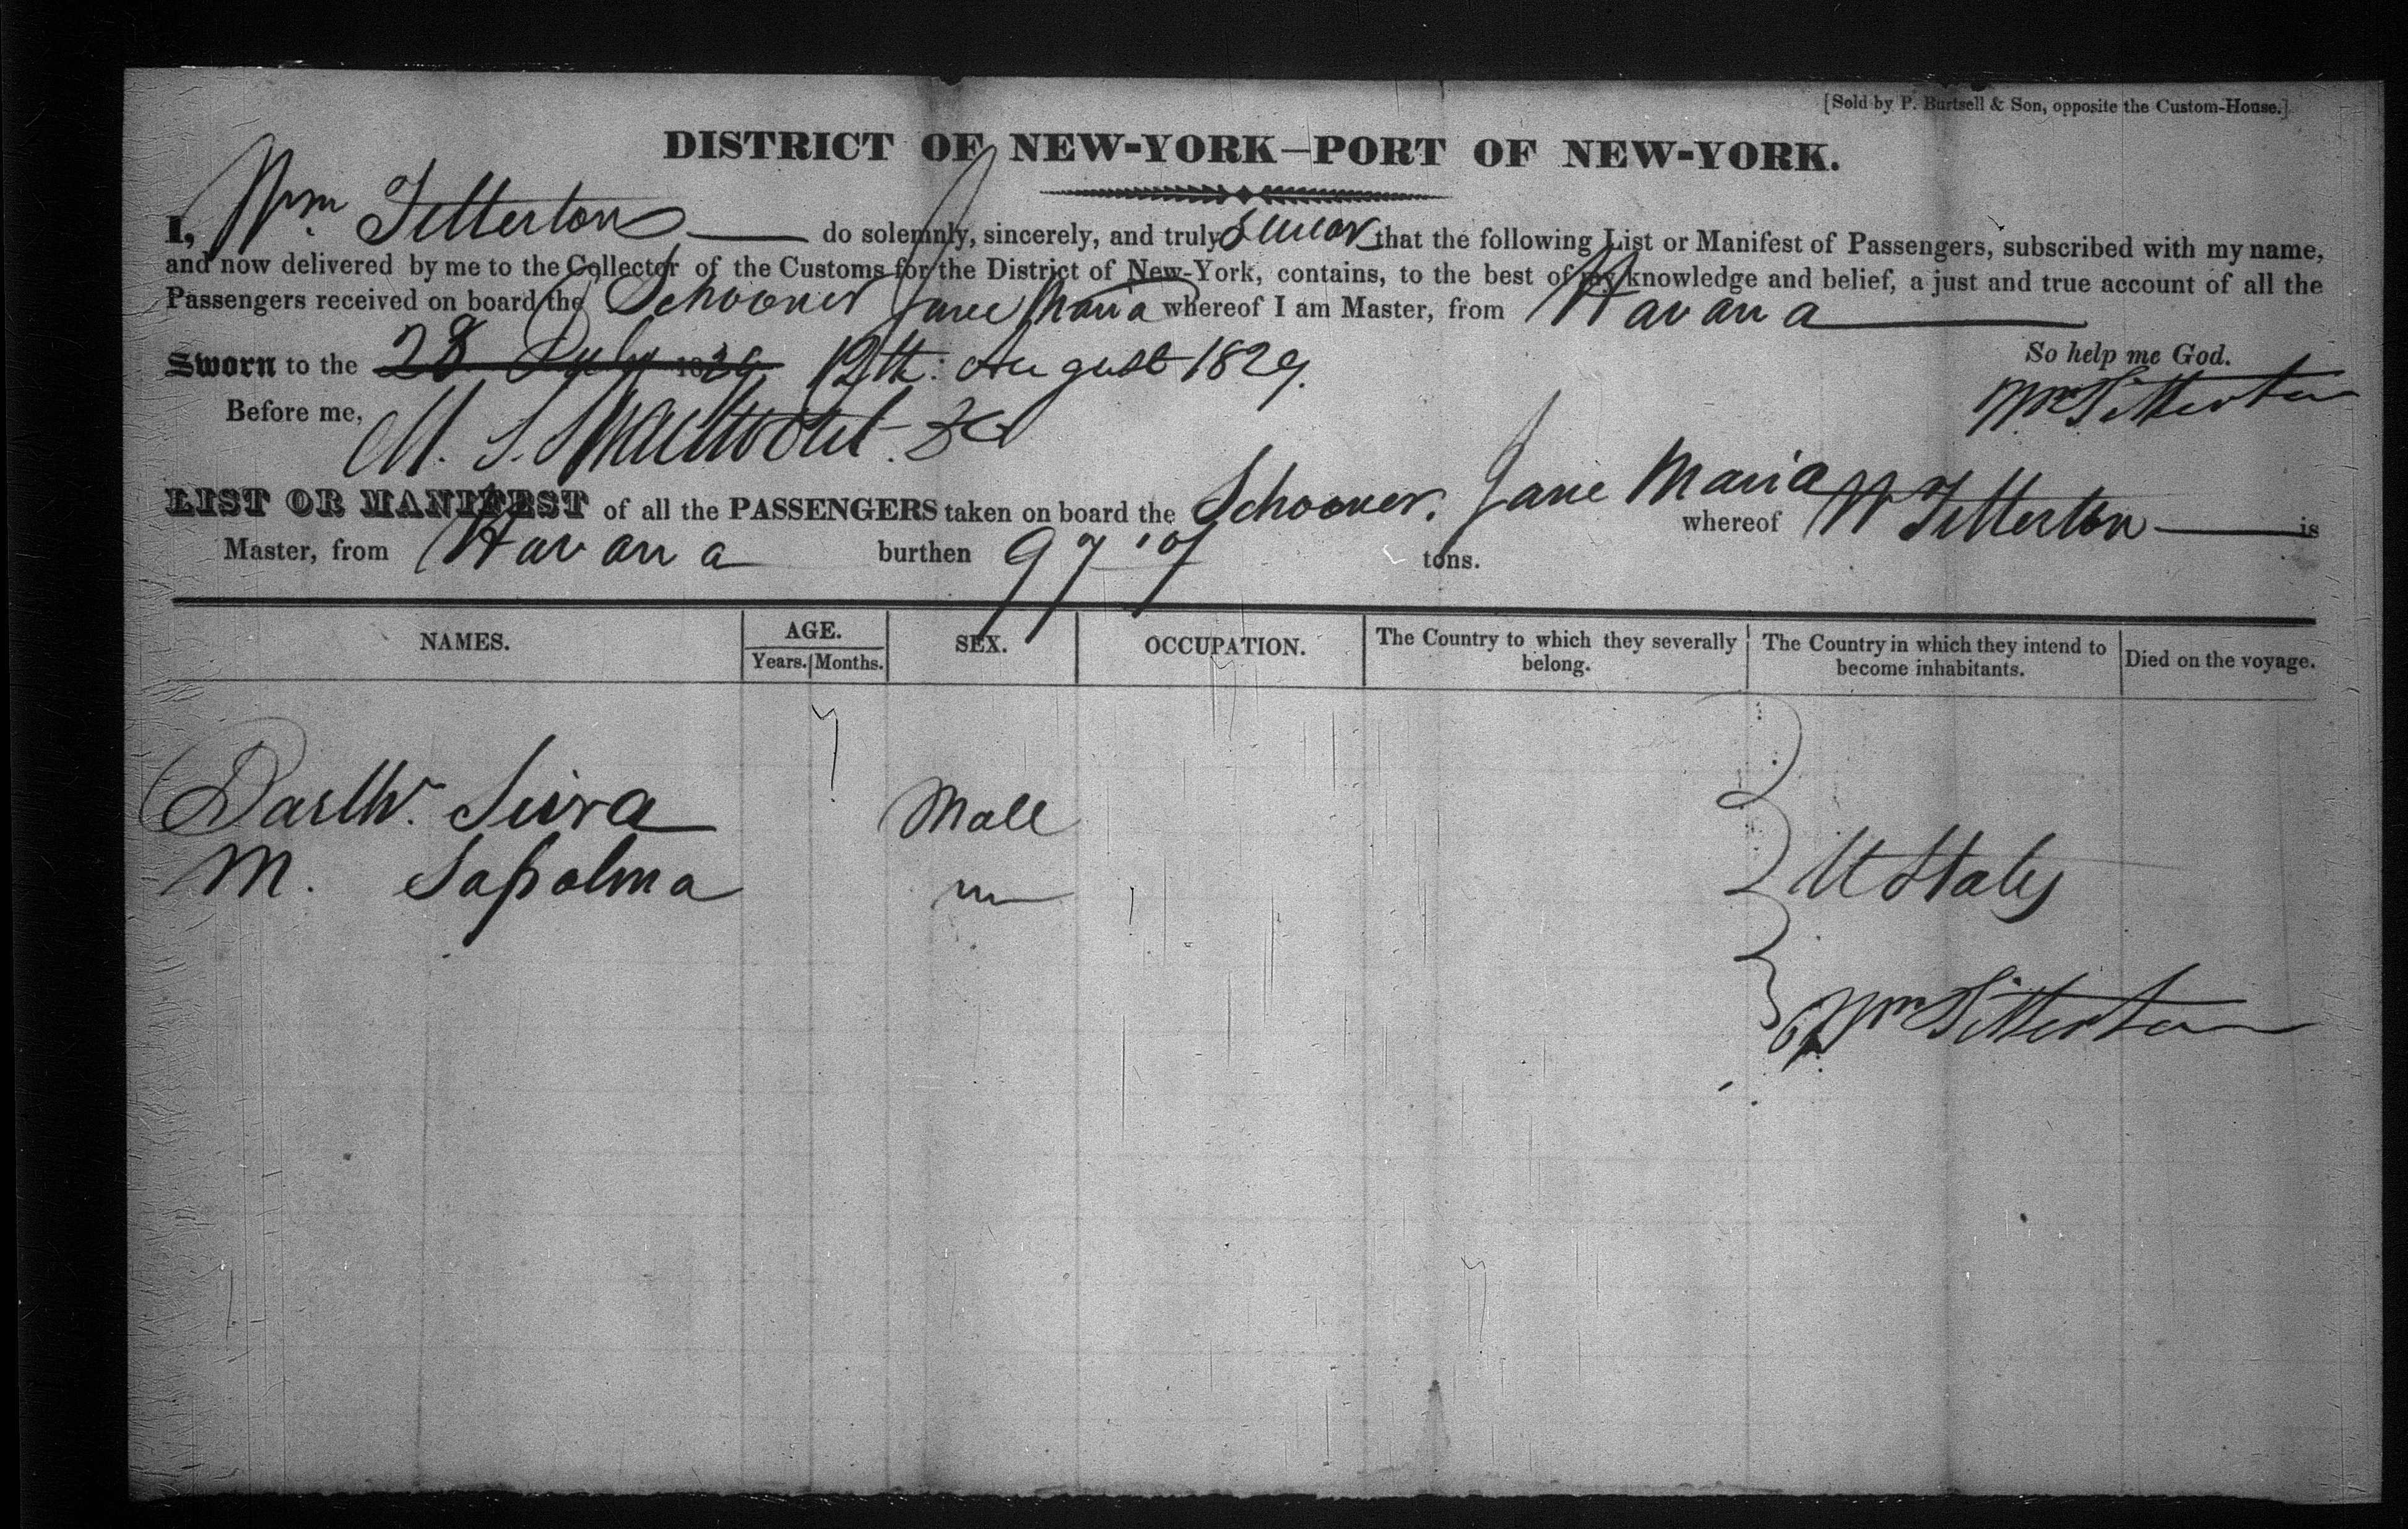 [Sold by P. Burtsell & Son, opposite the Custom-House.]
DISTRICT OF NEW-YORK—PORT OF NEW-YORK.
I, Wm Titterton do solemnly, sincerely, and truly swear that the following List or Manifest of Passengers, subscribed with my name,
and now delivered by me to the Collector of the Customs for the District of New-York, contains, to the best of my knowledge and belief, a just and true account of all the
Passengers received on board the Schooner Jane Maria whereof I am Master, from Havana
So help me God.
Sworn to the 28 July 1829 12th. August 1829.
Wm Titterton
Before me, M. S. Swartwout
LIST OR MANIFEST of all the PASSENGERS taken on board the Schooner. Jane Maria whereof W Titterton is
Master, from Havana burthen 97 tons.
NAMES. AGE. SEX. OCCUPATION. The Country to which they severally belong. The Country in which they intend to become inhabitants. Died on the voyage.
Years. Months.
Male
M. Sapolma
U States
Wm Titterton